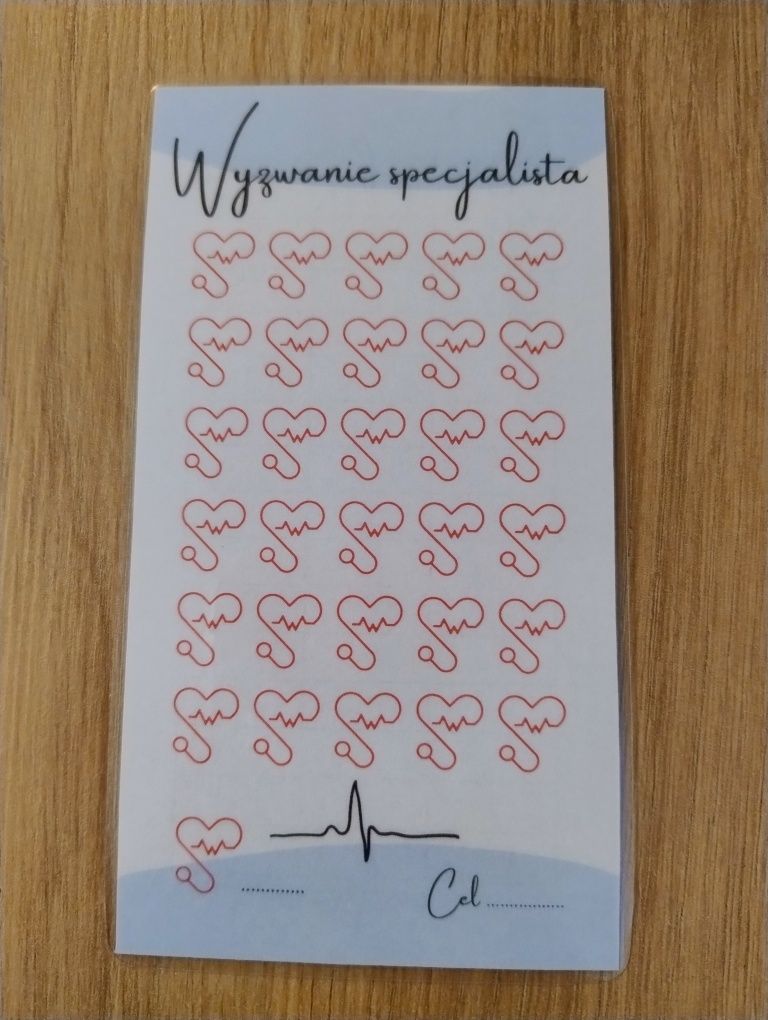 Wyzwanie specjalista
............
Cel ...............